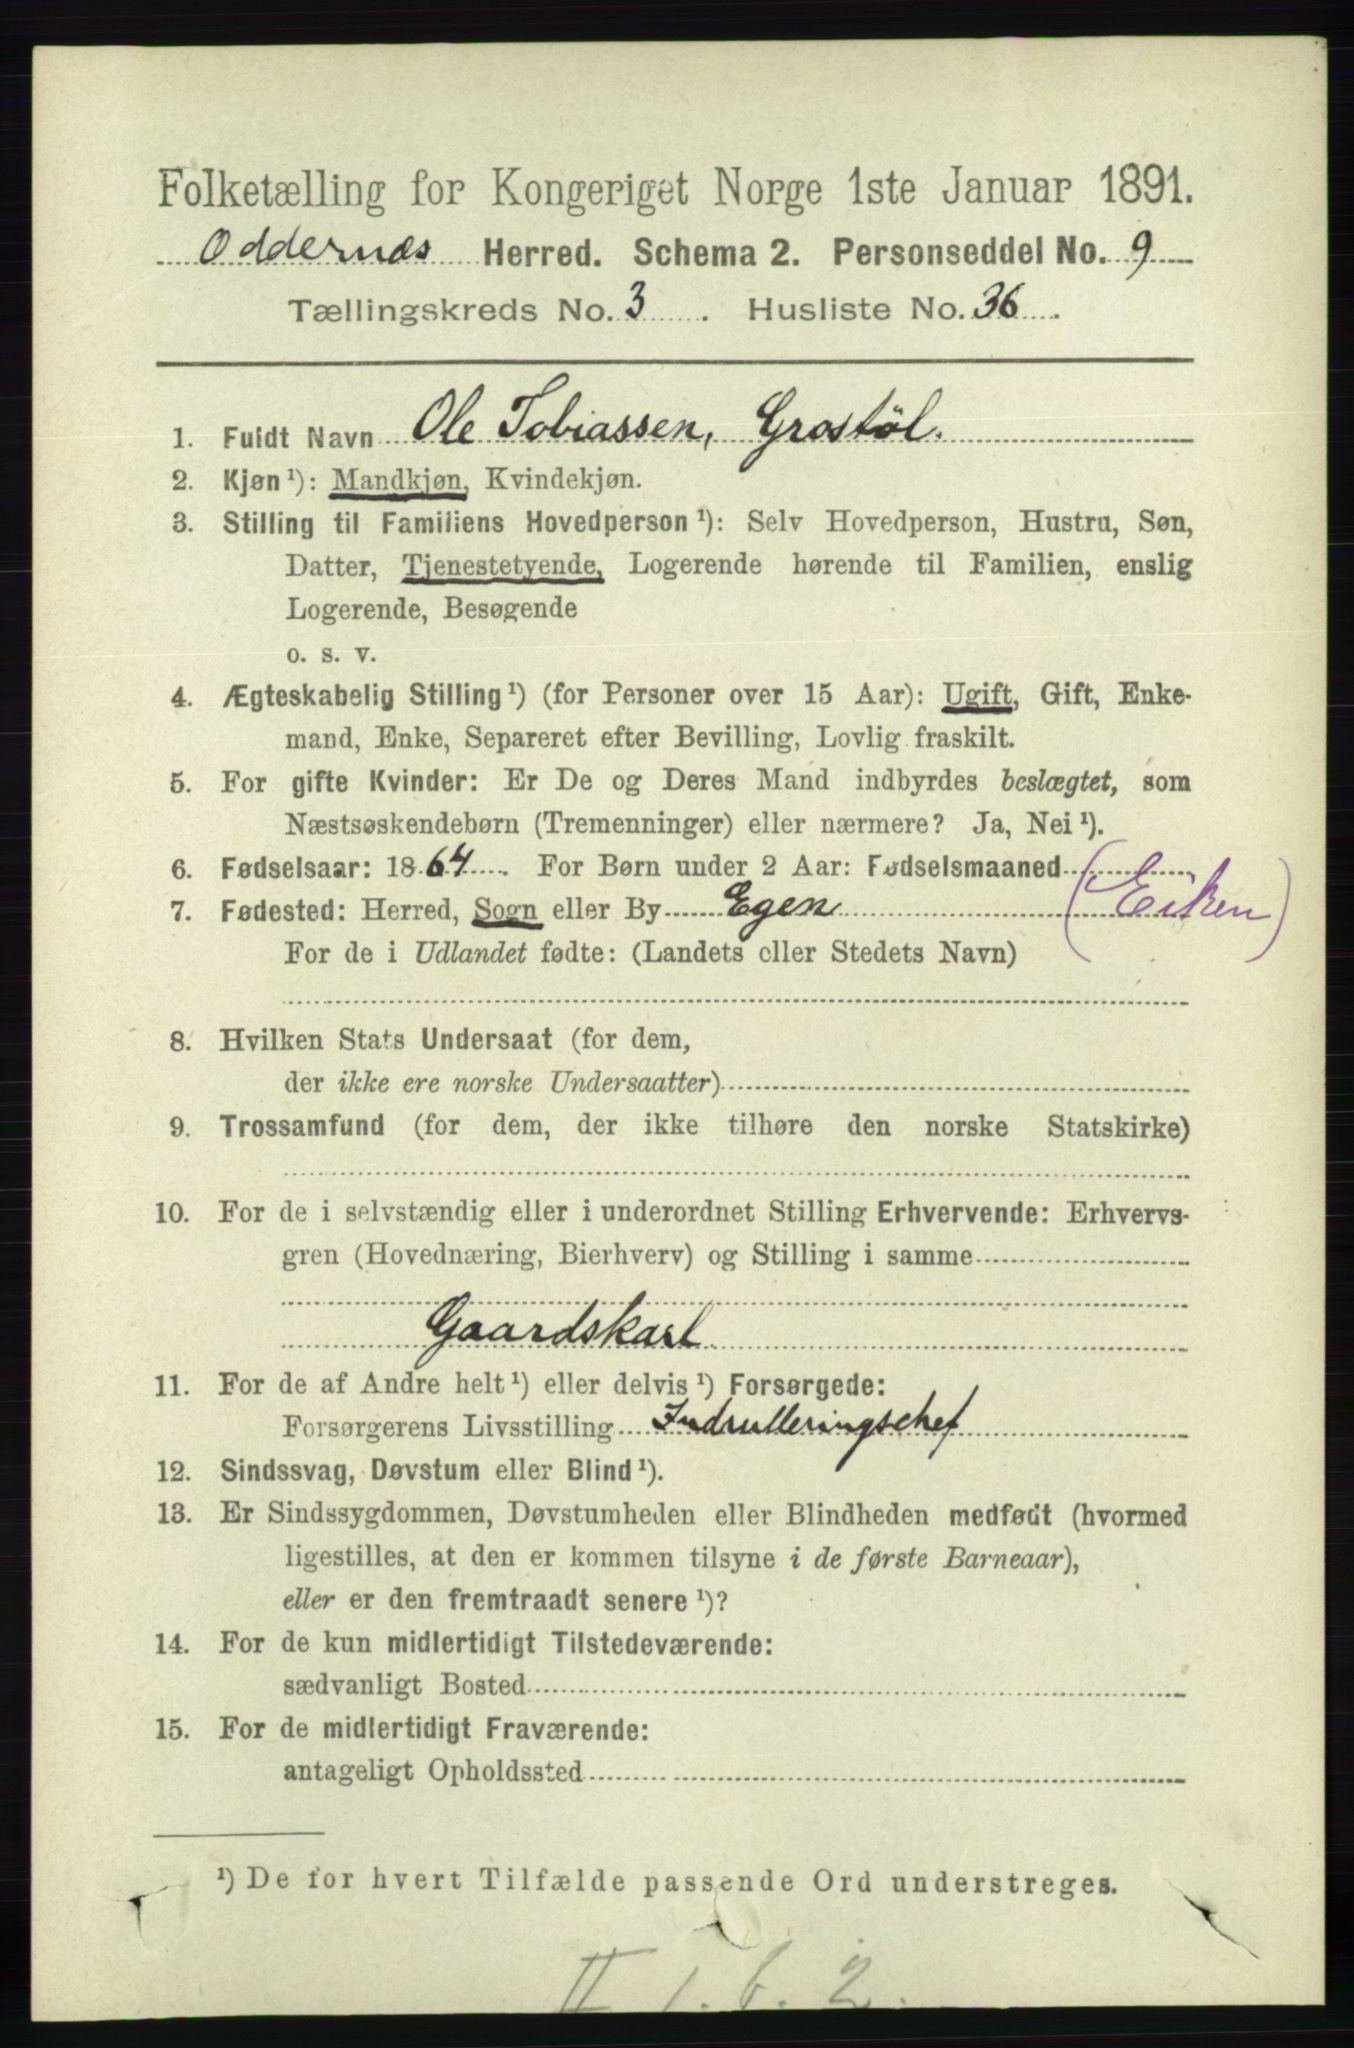 Folketælling for Kongeriget Norge 1ste Januar 1891.
Oddernæs Herred. Schema 2. Personseddel No. 9
Tællingskreds No. 3. Husliste No. 36.
1. Fuldt Navn Ole Tobiassen, Grostöl.
2. Kjøn ¹): Mandkjøn, Kvindekjøn.
3. Stilling til Familiens Hovedperson ¹): Selv Hovedperson, Hustru, Søn,
Datter, Tjenestetyende, Logerende hørende til Familien, enslig
Logerende, Besøgende
o. s. v.
4. Ægteskabelig Stilling ¹) (for Personer over 15 Aar): Ugift, Gift, Enke-
mand, Enke, Separeret efter Bevilling, Lovlig fraskilt.
5. For gifte Kvinder: Er De og Deres Mand indbyrdes beslægtet, som
Næstsøskendebørn (Tremenninger) eller nærmere? Ja, Nei ¹).
6. Fødselsaar: 1864. For Børn under 2 Aar: Fødselsmaaned
7. Fødested: Herred, Sogn eller By Egen (Eiken)
For de i Udlandet fødte: (Landets eller Stedets Navn)
8. Hvilken Stats Undersaat (for dem,
der ikke ere norske Undersaatter)
9. Trossamfund (for dem, der ikke tilhøre den norske Statskirke)
10. For de i selvstændig eller i underordnet Stilling Erhvervende: Erhvervs-
gren (Hovednæring, Bierhverv) og Stilling i samme
Gaardskarl
11. For de af Andre helt ¹) eller delvis ¹) Forsørgede:
Forsørgerens Livsstilling Indrulleringschef
12. Sindssvag, Døvstum eller Blind ¹).
13. Er Sindssygdommen, Døvstumheden eller Blindheden medfødt (hvormed
ligestilles, at den er kommen tilsyne i de første Barneaar),
eller er den fremtraadt senere ¹)?
14. For de kun midlertidigt Tilstedeværende:
sædvanligt Bosted
15. For de midlertidigt Fraværende:
antageligt Opholdssted
¹) De for hvert Tilfælde passende Ord understreges.
II 1. b. 2.